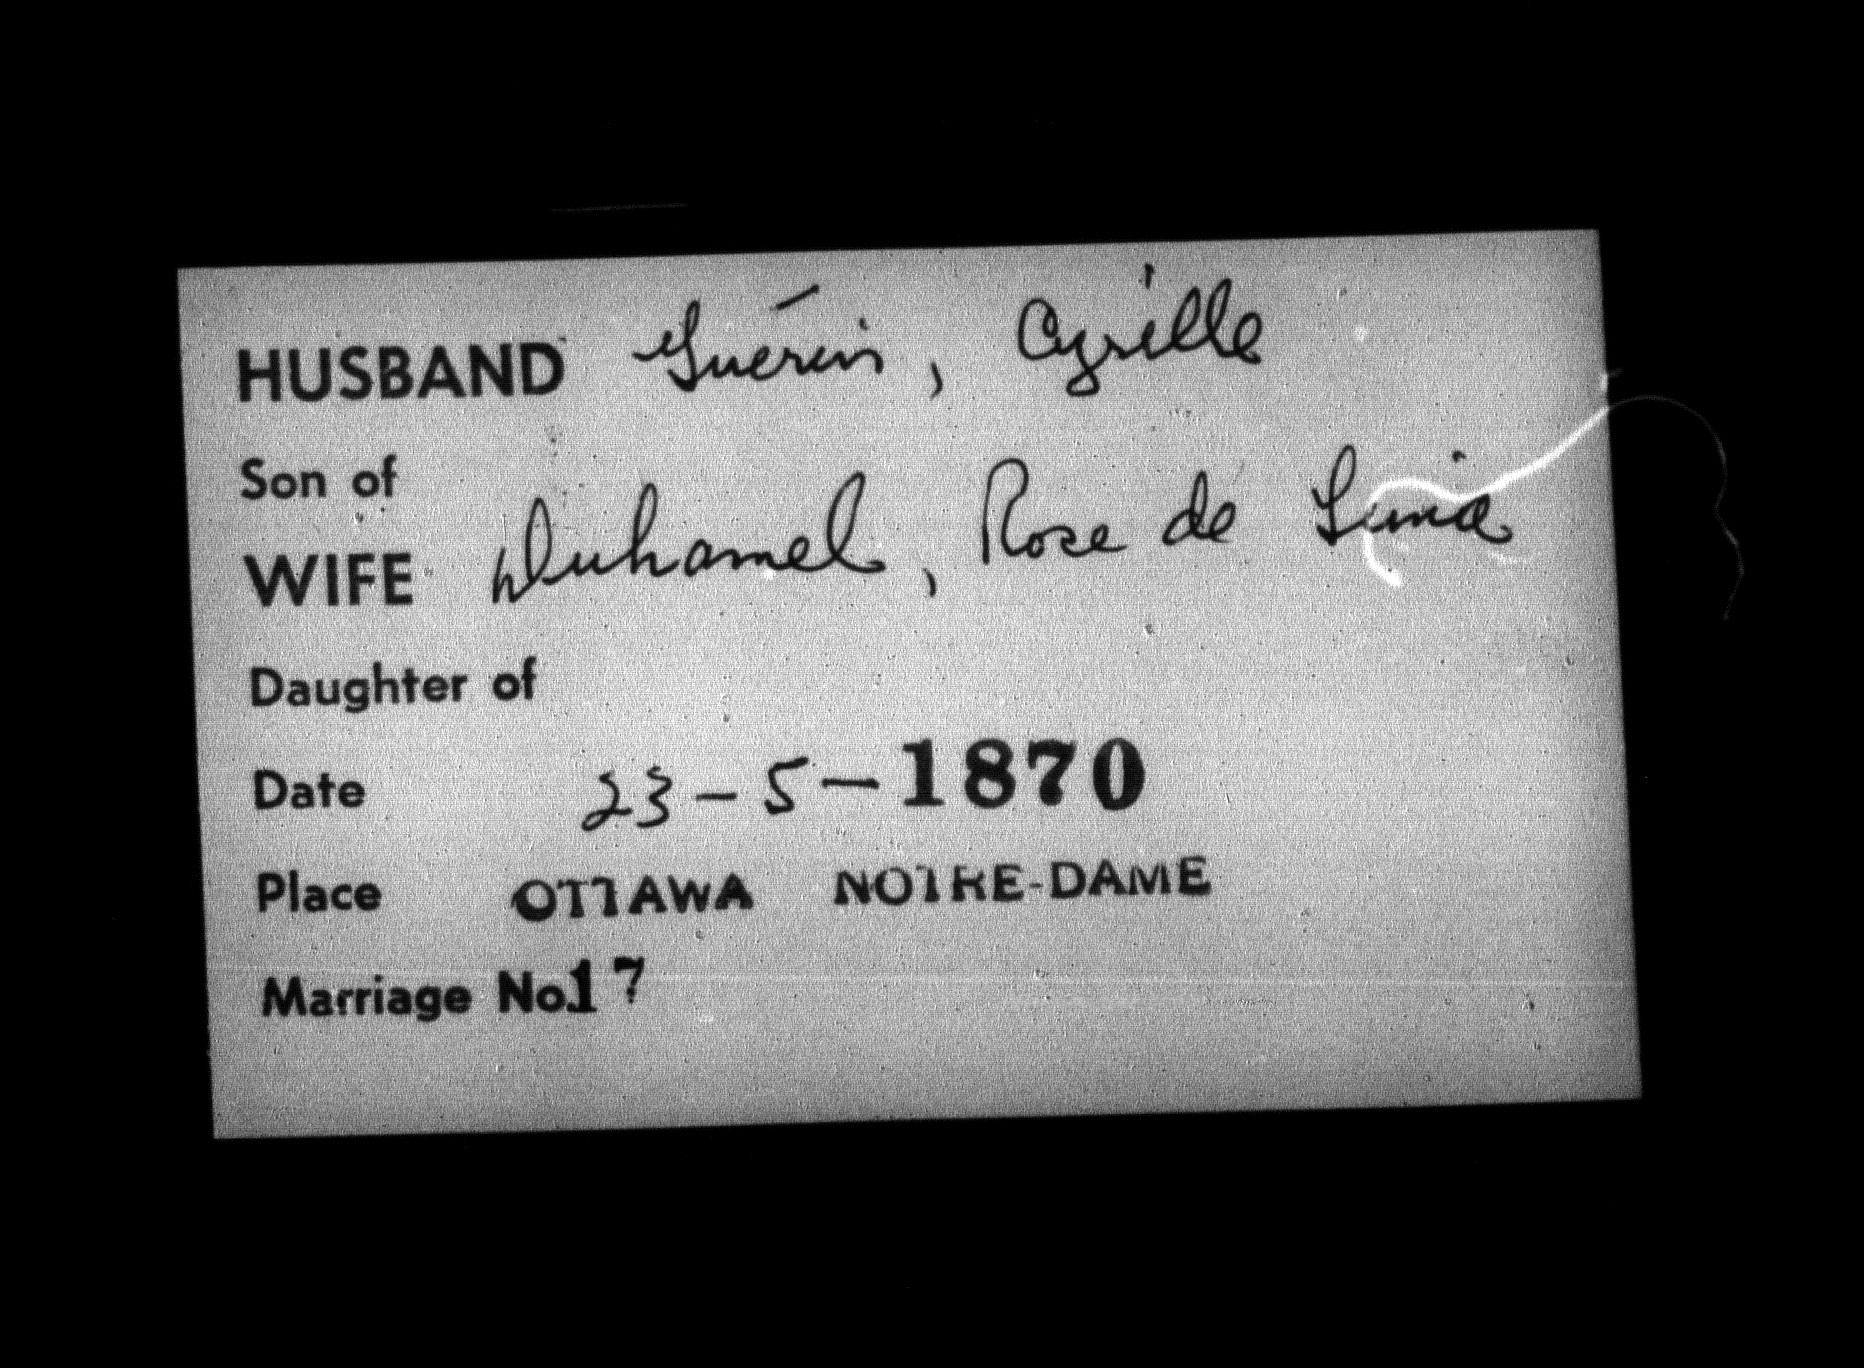 HUSBAND Guérin, Cyrille
Son of
WIFE Duhamel, Rose de Lima
Daughter of
Date 23-5-1870
Place OTTAWA NOTRE-DAME
Marriage No. 17